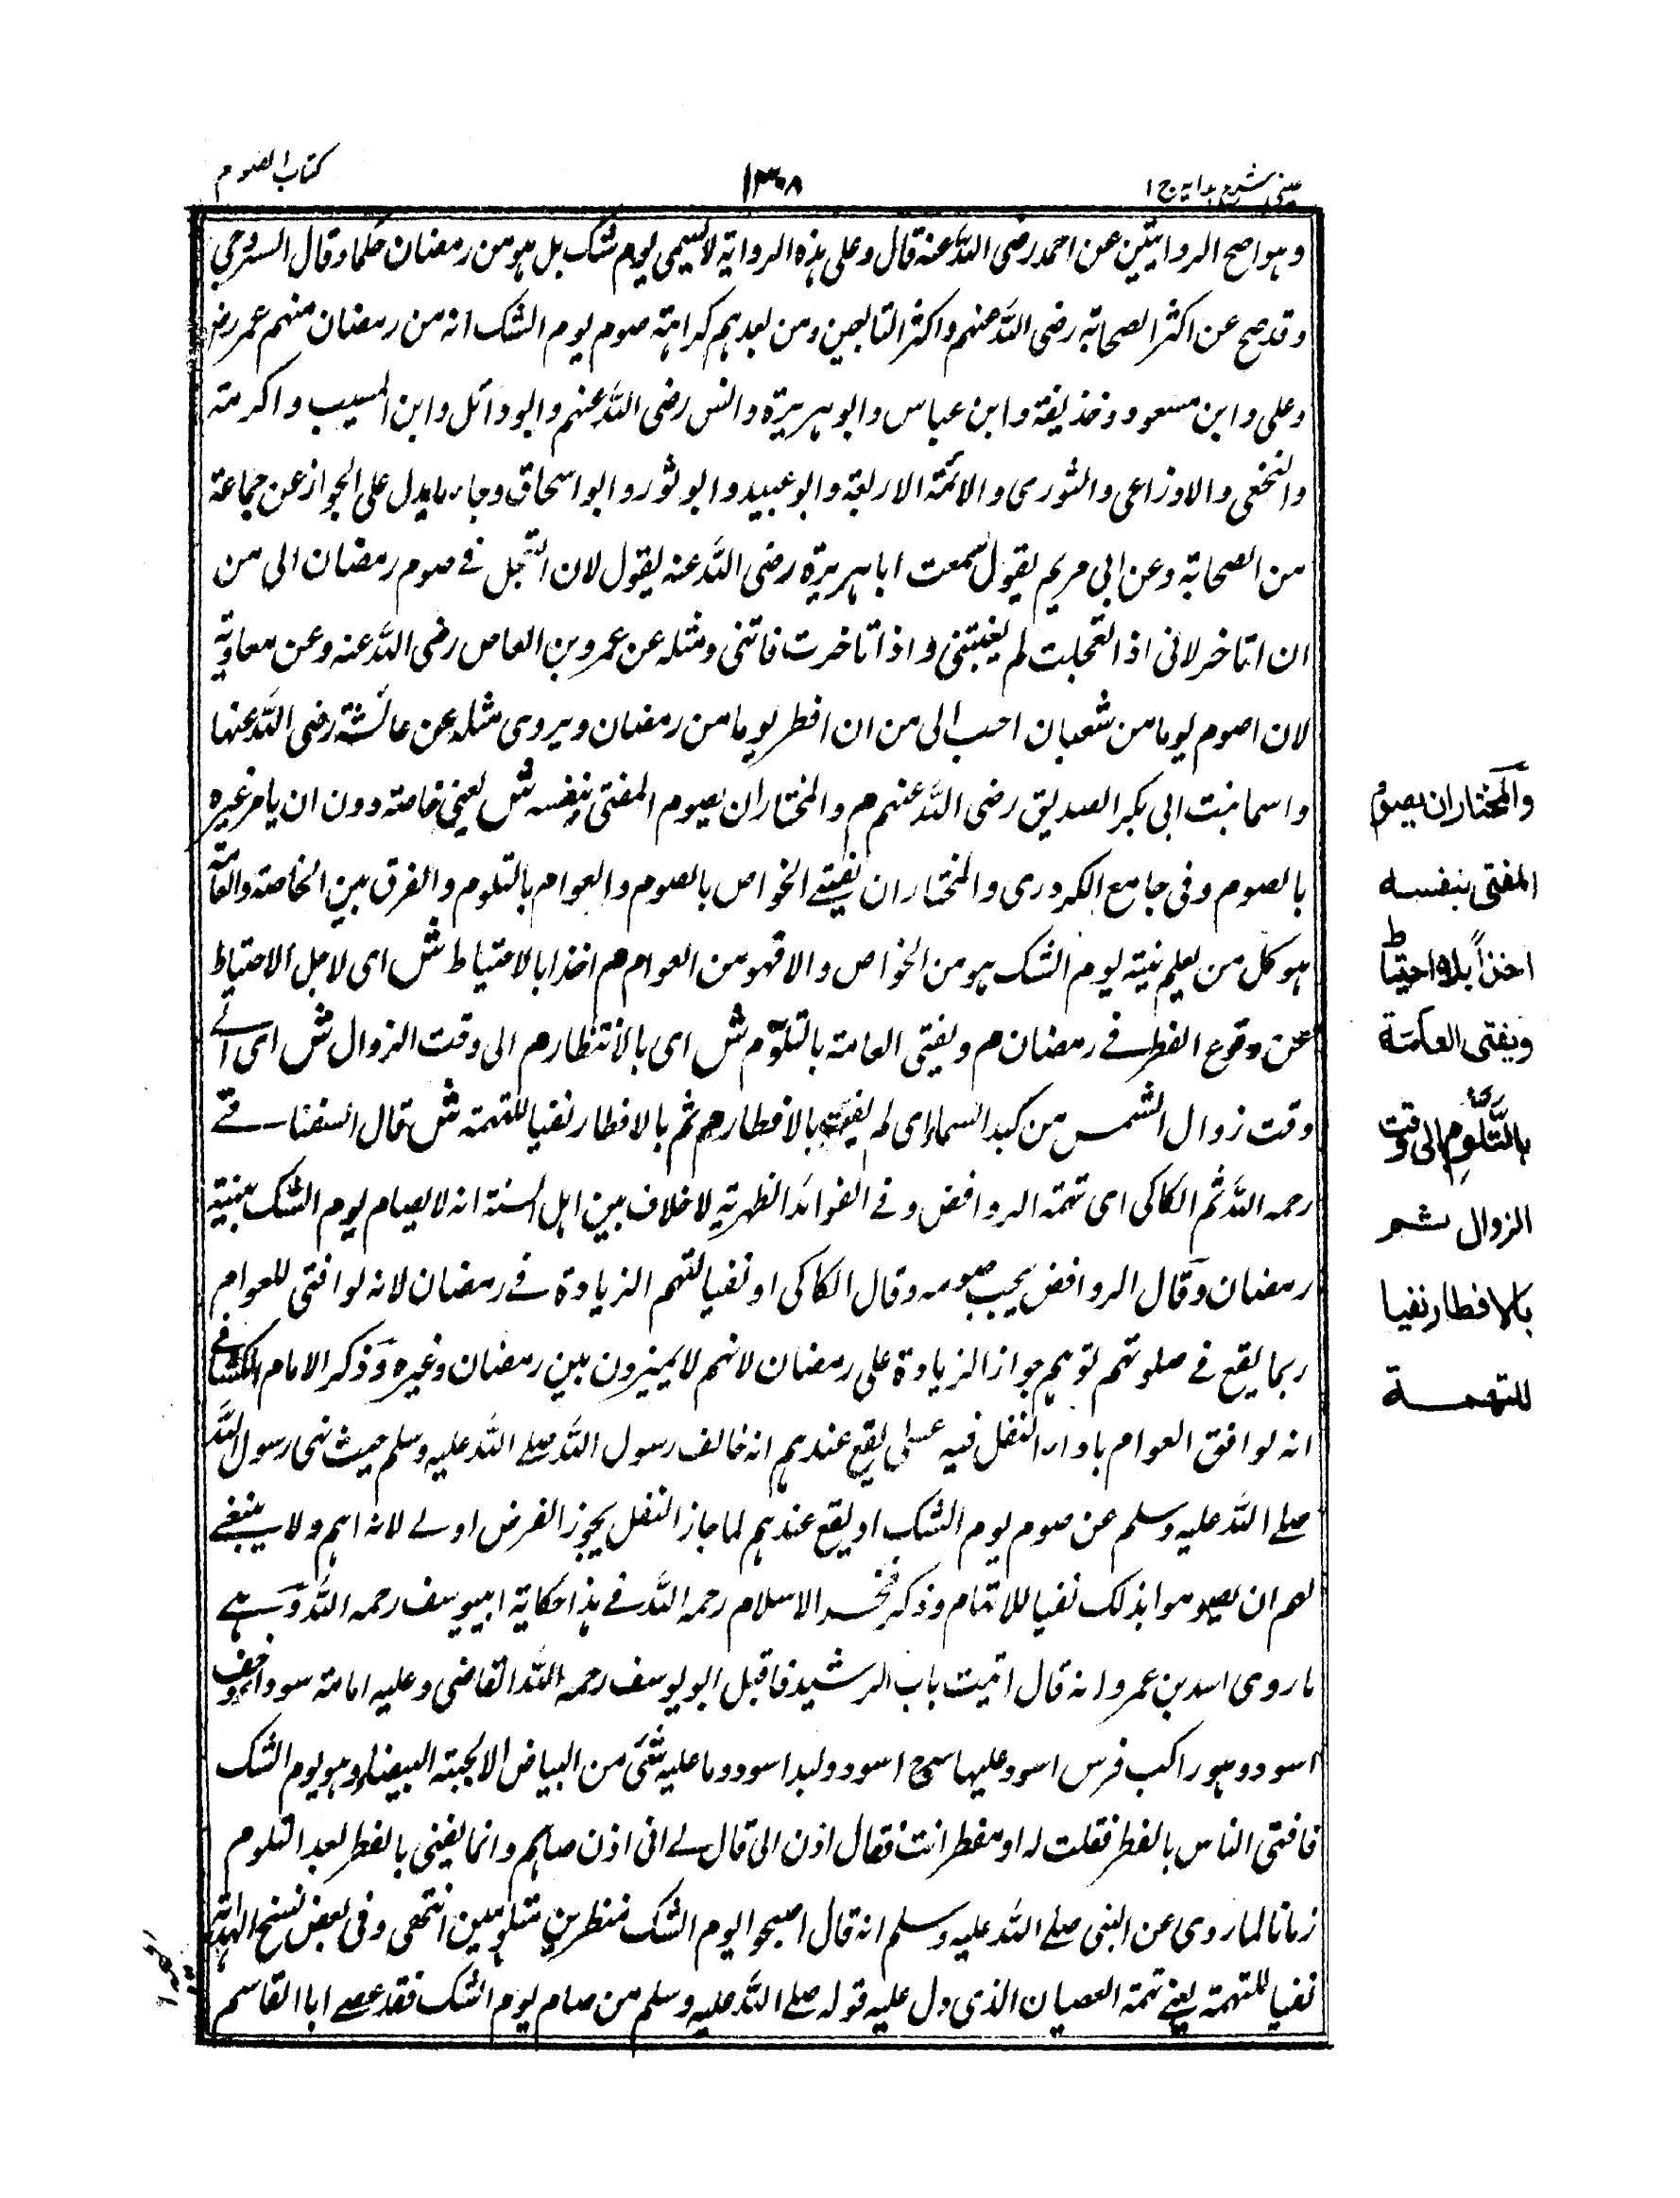 عینی شرح ہدایہ ج ۱
۱۳۰۸
کتاب الصوم
وہو اصح الروایتین عن احمد رضی اللہ عنہ قال وعلی ہذہ الروایة لا یسمی یوم شک بل ہو من رمضان حکما وقال السروجی
وقد صح عن اکثر الصحابة رضی اللہ عنہم واکثر التابعین ومن بعدہم کراہتہ صوم یوم الشک انہ من رمضان منہم عمر رض
وعلی وابن مسعود وحذیفة وابن عباس وابو ہریرة وانس رضی اللہ عنہم وابو وائل وابن المسیب واکرمتہ
والنخعی والاوزاعی والثوری والائمة الاربعة وابو عبید وابو ثور وابو اسحاق وجاء ما یدل علی الجواز عن جماعة
من الصحابة وعن ابی مریم یقول سمعت ابا ہریرة رضی اللہ عنہ یقول لان اتعجل فے صوم رمضان الی من
ان اتاخر لانی اذا تعجلت لم یفتنی واذا تاخرت فاتنی ومثلہ عن عمرو بن العاص رضی اللہ عنہ وعن معاویة
لان اصوم یوما من شعبان احب الی من ان افطر یوما من رمضان ویروی مثلہ عن عائشة رضی اللہ عنہا
واسما بنت ابی بکر الصدیق رضی اللہ عنہم م والمختار ان یصوم المفتی بنفسہ ش یعنی خاصة دون ان یامر غیرہ
بالصوم وفی جامع الکردری والمختار ان یفتے الخواص بالصوم والعوام بالتلوم والفرق بین الخاصة والعامة
ہو کل من یعلم نیة یوم الشک ہو من الخواص والا فہو من العوام م اخذا بالاحتیاط ش ای لاجل الاحتیاط
عن وقوع الفطر فے رمضان م ویفتی العامة بالتلوم ش ای بالانتظار م الی وقت الزوال ش ای الے
وقت زوال الشمس من کبد السماء ای لم یفت بالافطار م ثم بالافطار نفیا للتہمة ش قال السفناقے
رحمہ اللہ ثم الکاکی ای تہمة الروافض وفے الفوائد الظہریة لا خلاف بین اہل السنة انہ لا یصام یوم الشک بنیة
رمضان وقال الروافض یجب صومہ وقال الکاکی او نفیا لتہم الزیادة فے رمضان لانہ لو افتی للعوام
ربما یقع فے صلوتہم توہم جواز الزیادة علی رمضان لانہم لا یمیزون بین رمضان وغیرہ وذکر الامام الکشانے
انہ لو افق العوام باداء النفل فیہ عسی یقع عندہم انہ خالف رسول اللہ صلے اللہ علیہ وسلم حیث نہی رسول اللہ
صلے اللہ علیہ وسلم عن صوم یوم الشک او یقع عندہم لما جاز النفل یجوز الفرض اولے لانہ اہم ولا ینبغے
لہم ان یصوموا بذلک نفیا للاتہام وذکر فخر الاسلام رحمہ اللہ فے ہذا حکایة ابیوسف رحمہ اللہ وہے
ما روی اسد بن عمرو انہ قال اتیت باب الرشید فاقبل ابو یوسف رحمہ اللہ القاضی وعلیہ امامة سوداء وخف
اسود وہو راکب فرس اسود علیہا سرج اسود ولبد اسود وما علیہ شئ من البیاض الا لجیتہ البیضاء وہو یوم الشک
فافتی الناس بالفطر فقلت لہ او مفطر انت فقال ادن الی قال لے انی اذن صائم وانما یفتی بالفطر بعد التلوم
زمانا لما روی عن النبی صلے اللہ علیہ وسلم انہ قال اصبحوا یوم الشک منتظرین متلومین انتہی وفی بعض نسخ الہدایة
نفیا للتہمة یعنے تہمة العصیان الذی دل علیہ قولہ صلے اللہ علیہ وسلم من صام یوم الشک فقد عصے ابا القاسم
والمختار ان یصوم
المفتی بنفسہ
اخذاً بالاحتیاط
ویفتی العامّة
بالتَّلَوِّم الی وقت
الزوال ثم
بالافطار نفیا
للتہمة